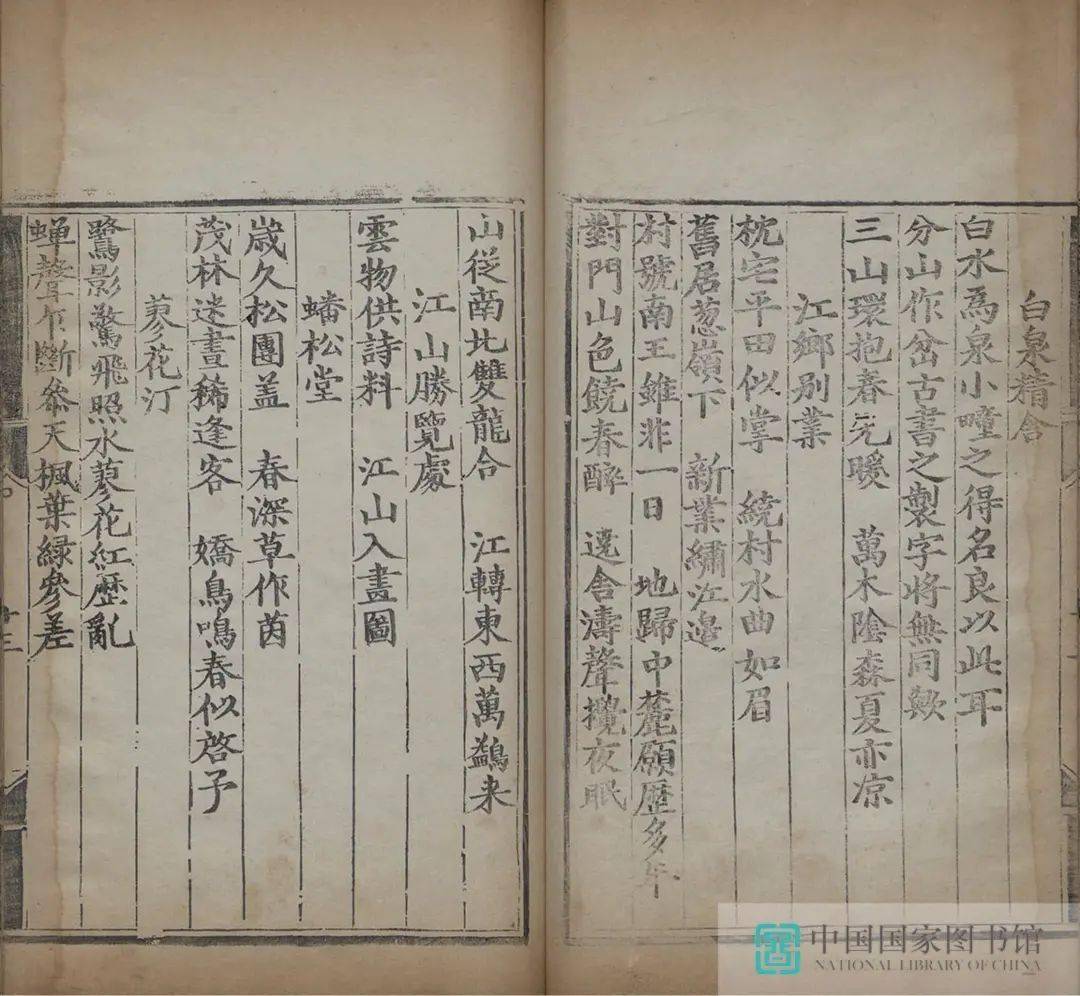 白泉精舍
白水為泉小疃之得名良以此耳
分山作岔古書之製字將無同歟
三山環抱春先暖　萬木陰森夏亦凉
江鄉别業
枕宅平田似掌　繞村水曲如眉
舊居葱嶺下　新業繡江邊
村號南王雖非一日　地歸中麓願歷多年
對門山色饒春醉　遶舍濤聲攪夜眠
山從南北雙龍合　江轉東西萬鷁来
江山勝覽處
雲物供詩料　江山入畫圖
蟠松堂
歲久松團盖　春深草作茵
茂林迷晝稀逢客　嬌鳥鳴春似啓予
蓼花汀
鷺影驚飛照水蓼花紅歷亂
蝉聲乍斷叅天楓葉緑參差
十三
中国国家图书馆
NATIONAL LIBRARY OF CHINA